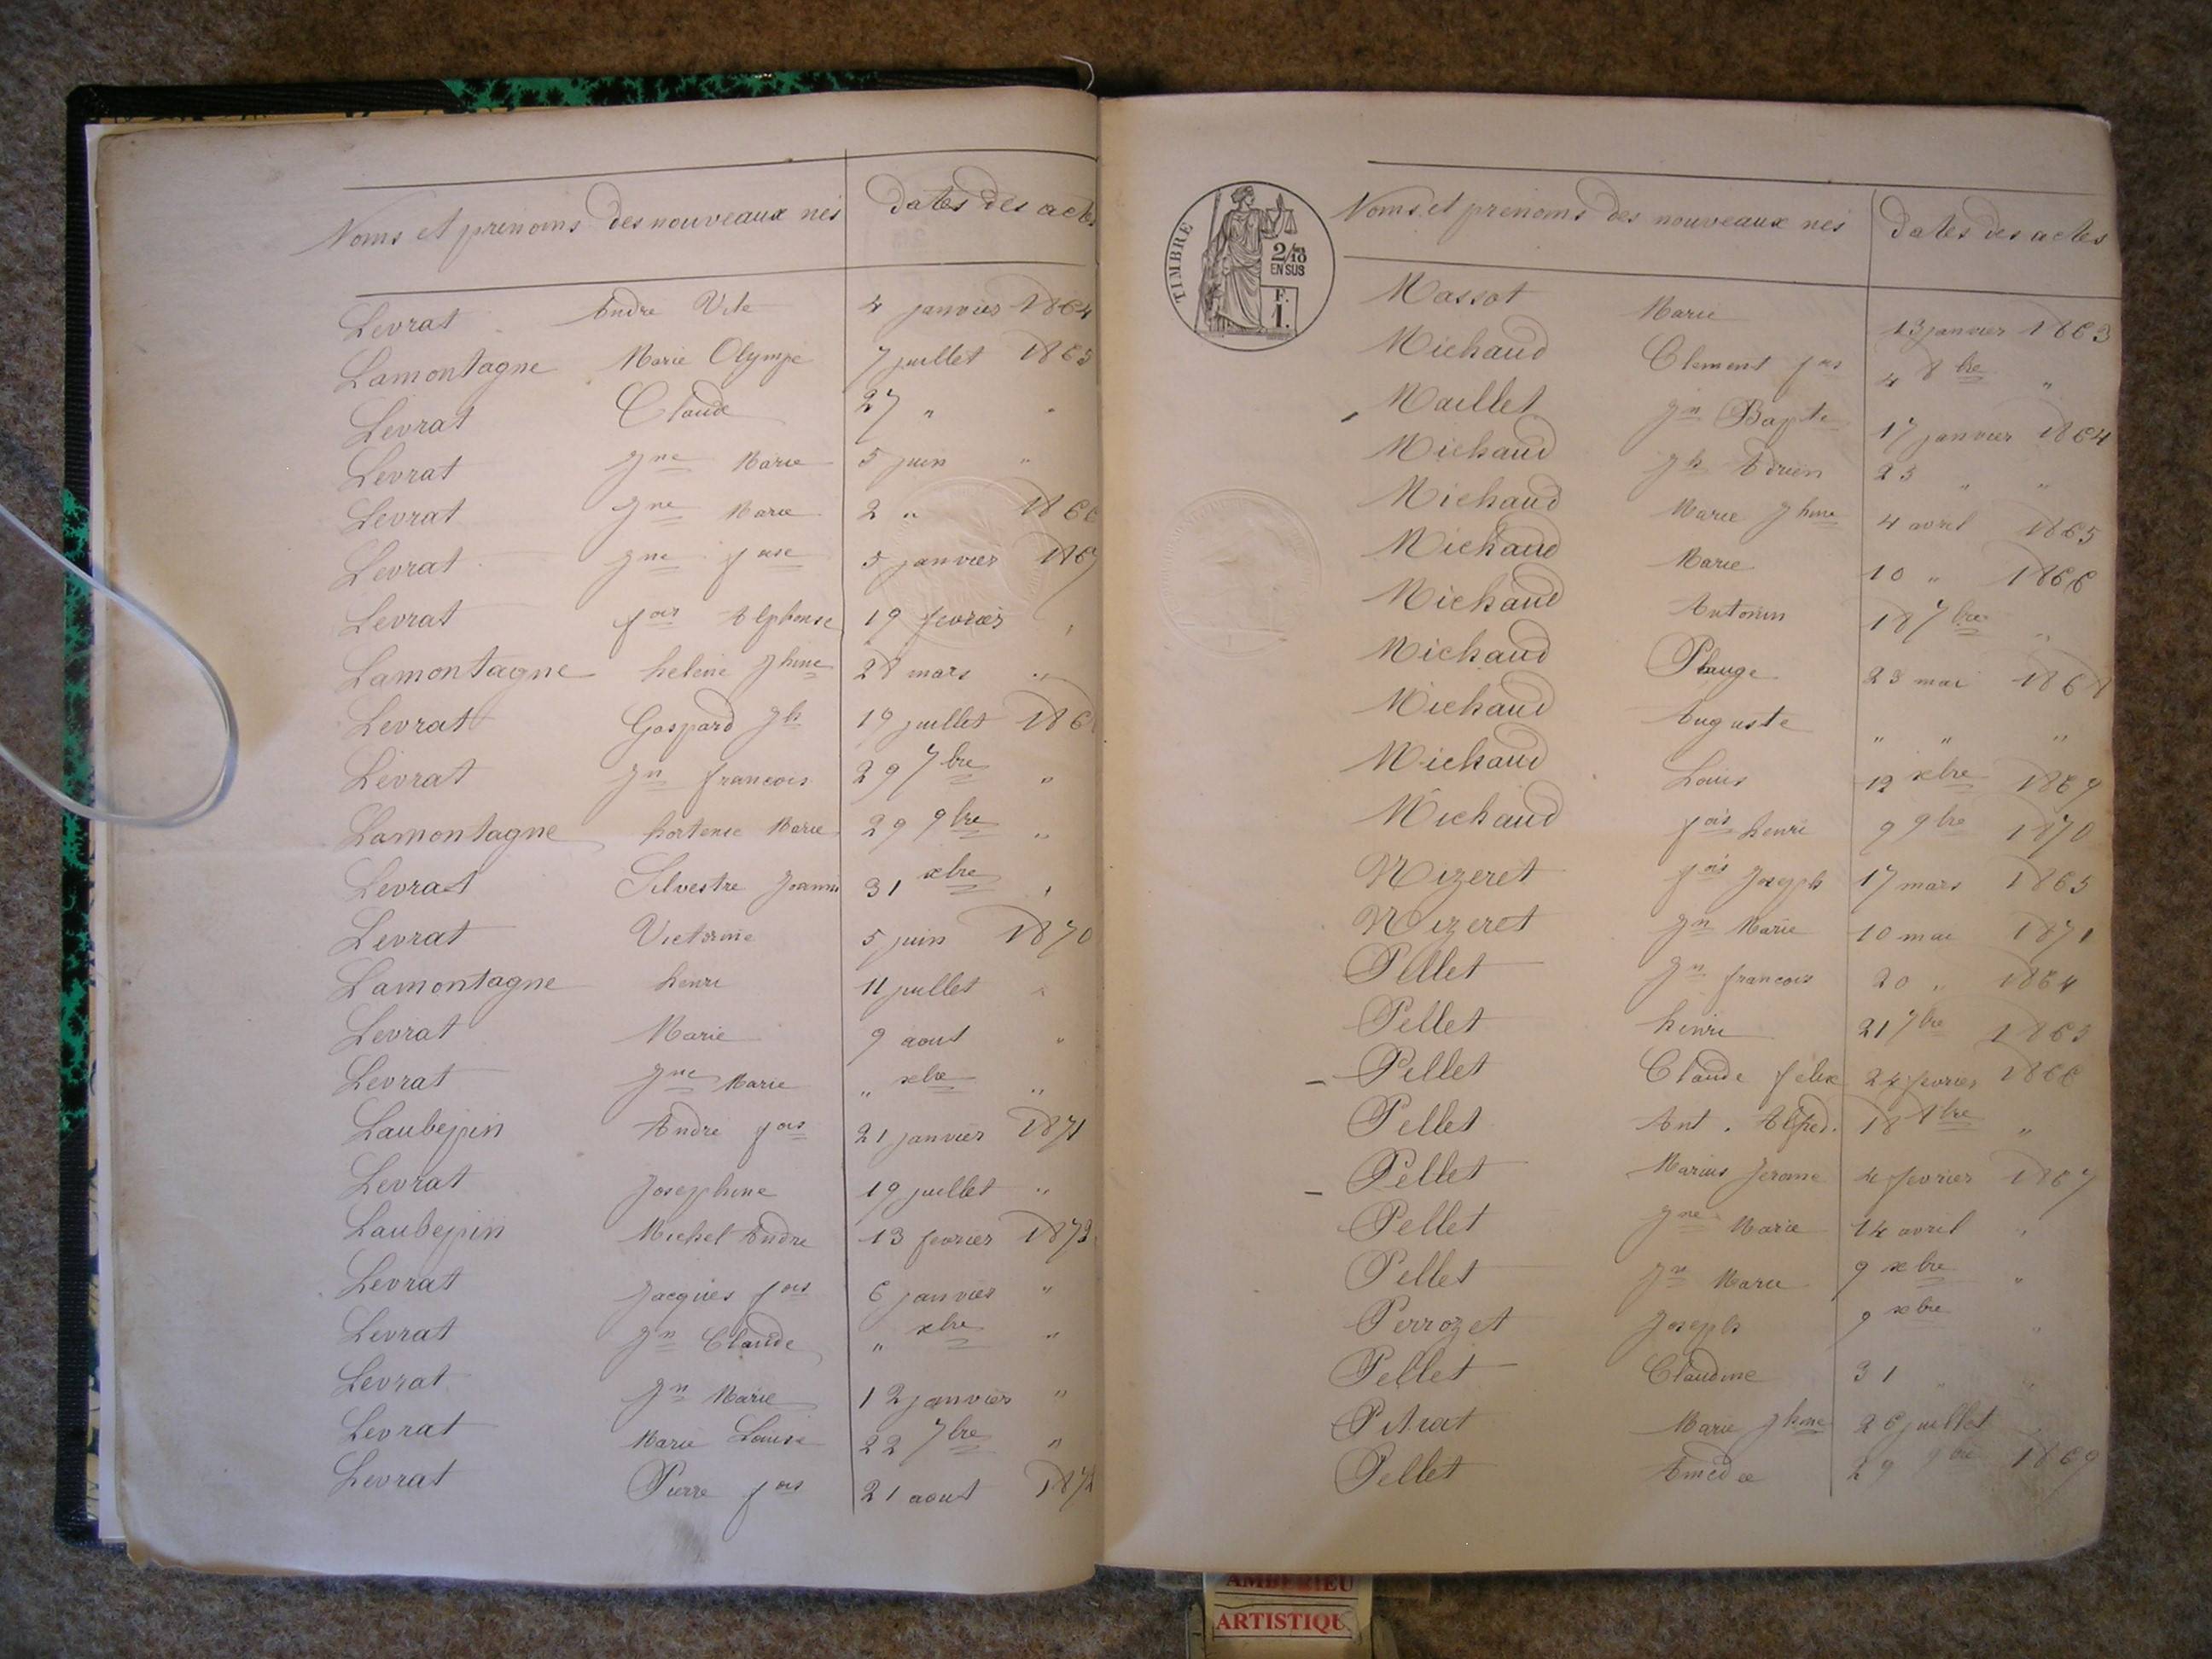 Noms et prenoms des nouveaux nés Dates des actes
Levrat Andre Vite 4 janvier 1864
Lamontagne Marie Olympe 7 juillet 1865
Levrat Claude 27 " "
Levrat Jne Marie 5 juin "
Levrat Jne Marie 2 " 1866
Levrat Jne fse 5 janvier 1867
Levrat fois Alphonse 19 fevrier "
Lamontagne helene Jhine 28 mars "
Levrat Gaspard Jh 19 juillet
Levrat Jn francois 29 7bre "
Lamontagne hortense Marie 29 9bre "
Levrat Silvestre Joannis 31 xbre "
Levrat Victorine 5 juin 1870
Lamontagne henri 11 juillet "
Levrat Marie 9 aout "
Levrat Jne Marie " xbre "
Laubepin Andre fois 21 janvier 1871
Levrat Josephine 19 juillet "
Laubepin Michel Andre 13 fevrier 1872
Levrat Jacques fois 6 janvier "
Levrat Jn Claude " xbre "
Levrat Jn Marie 12 janvier "
Levrat Marie Louise 22 7bre "
Levrat Pierre fois 21 aout
TIMBRE
2/10 EN SUS
F. 1.
Noms et prenoms des nouveaux nés Dates des actes
Massot Marie 13 janvier 1863
Michaud Clement fois 4 8bre "
Maillet Jn Bapte 17 janvier 1864
Michaud Jh Adrien 23 " "
Michaud Marie Jhine 4 avril 1865
Michaud Marie 10 " 1866
Michaud Antonin 18 7bre "
Michaud 23 mai 1868
Michaud Auguste " " "
Michaud Louis 12 xbre 1869
Michaud fois henri 9 9bre 1870
Mizeret fois Joseph 17 mars 1865
Mizeret Jn Marie 10 mai 1871
Pellet Jn francois 20 " 1864
Pellet henri 21 7bre 1865
Pellet Claude felix 24 fevrier 1866
Pellet Ant. Alfred. 18 8bre "
Pellet Marius Jerome 4 fevrier 1867
Pellet Jne Marie 14 avril "
Pellet Jn Marie 9 xbre "
Perrozet Joseph 9 xbre "
Pellet Claudine 31 " "
Pitrat Marie Jhine 26 juillet
Pellet Amedee 29 9bre 1869
AMBERIEU
ARTISTIQU